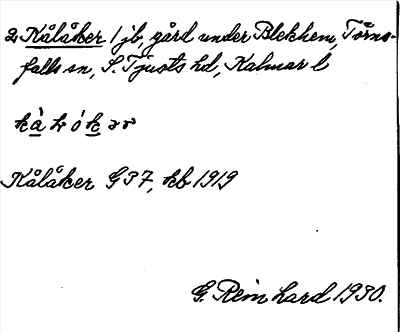 2 Kålåker 1 jb, gård under Blekhem, Törns-
falls sn, S. Tjusts hd, Kalmar l
Kålåker G37, kb 1919
G. Reinhard 1930.